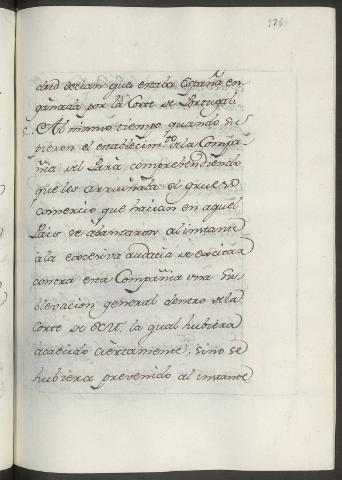 178
drid decian que estaba España en-
gañada por la Corte de Portugal.
5. Al mismo tiempo quando su-
pieron el establecim.to de la Compa-
ñia del Pará, comprendiendo
que les arruinaba el grueso
comercio que hacian en aquel
Pais se abanzaron al instante
a la excesiva audacia de excitar
contra esta Compañia una su-
blevacion general dentro de la
Corte de V.M., la qual hubiera
acaecido ciertamente, sino se
hubiera prevenido al instante